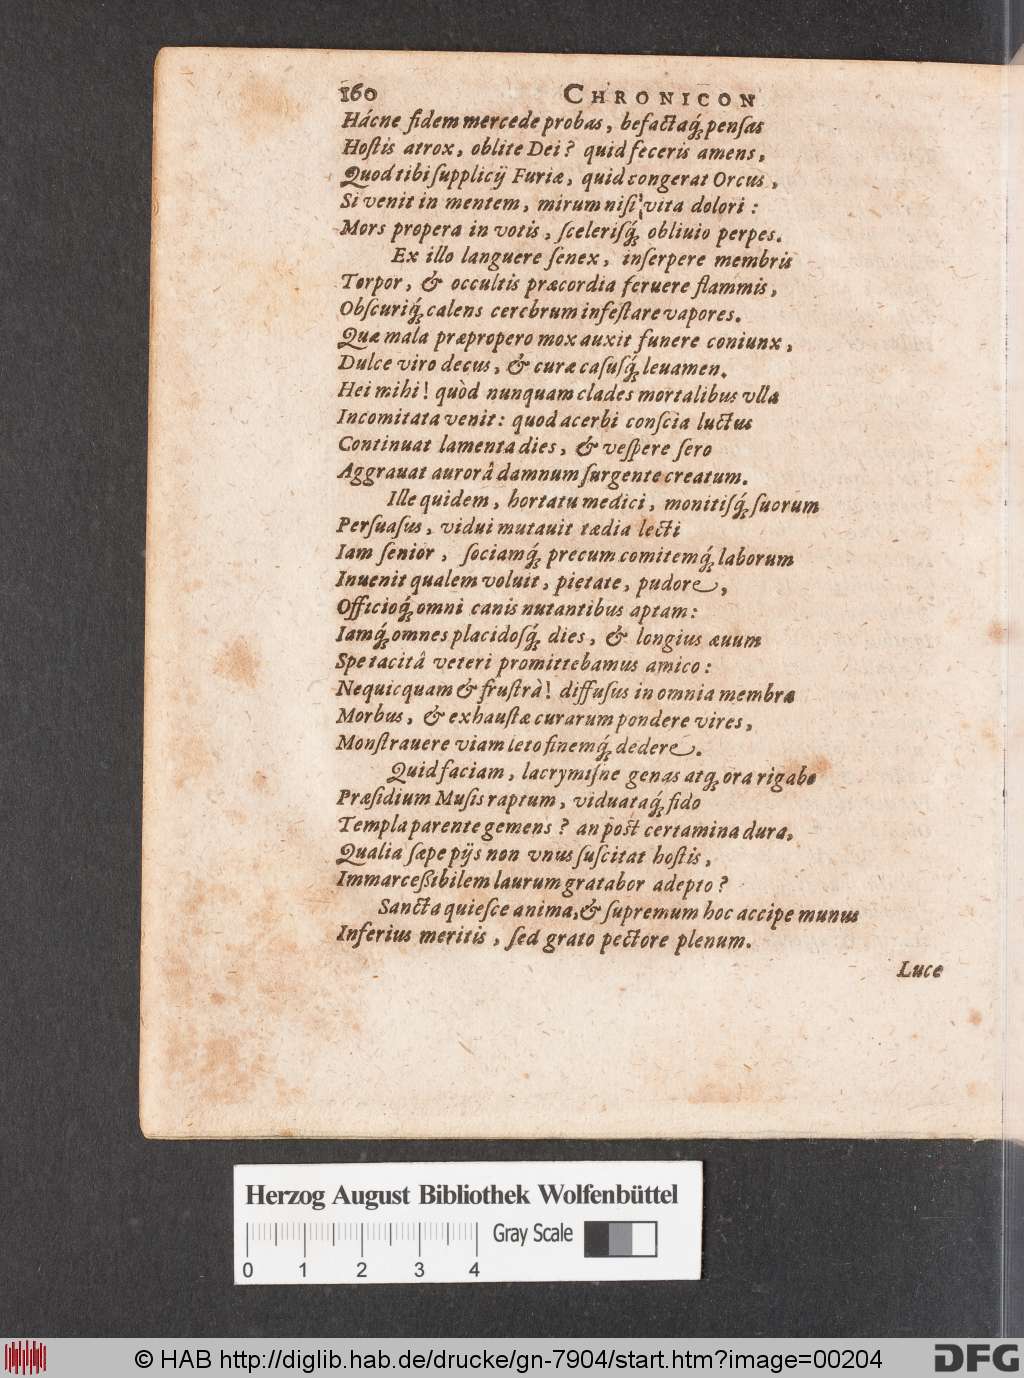 160 CHRONICON
Hácne fidem mercede probas, befactaq́ꝫ pensas
Hostis atrox, oblite Dei? quid feceris amens,
Quod tibi supplicij Furiæ, quid congerat Orcus,
Si venit in mentem, mirum nisi vita dolori:
Mors propera in votis, scelerisq́ꝫ obliuio perpes.
Ex illo languere senex, inserpere membris
Torpor, & occultis præcordia feruere flammis,
Obscuriq́ꝫ calens cerebrum infestare vapores.
Quæ mala præpropero mox auxit funere coniunx,
Dulce viro decus, & curæ casusq́ꝫ leuamen.
Hei mihi! quòd nunquam clades mortalibus vlla
Incomitata venit: quod acerbi conscia luctus
Continuat lamenta dies, & vespere sero
Aggrauat aurorâ damnum surgente creatum.
Ille quidem, hortatu medici, monitisq́ꝫ suorum
Persuasus, vidui mutauit tædia lecti
Iam senior, sociamq́ꝫ precum comitemq́ꝫ laborum
Inuenit qualem voluit, pietate, pudore,
Officioq́ꝫ omni canis nutantibus aptam:
Iamq́ꝫ omnes placidosq́ꝫ dies, & longius æuum
Spe tacitâ veteri promittebamus amico:
Nequicquam & frustrà! diffusus in omnia membra
Morbus, & exhaustæ curarum pondere vires,
Monstrauere viam leto finemq́ꝫ dedere.
Quid faciam, lacrymisne genas atqꝫ ora rigabo
Præsidium Musis raptum, viduataq́ꝫ fido
Templa parente gemens? an post certamina dura,
Qualia sæpe pijs non vnus suscitat hostis,
Immarceßibilem laurum gratabor adepto?
Sancta quiesce anima, & supremum hoc accipe munus
Inferius meritis, sed grato pectore plenum.
Luce
Herzog August Bibliothek Wolfenbüttel
0 1 2 3 4 Gray Scale
© HAB http://diglib.hab.de/drucke/gn-7904/start.htm?image=00204 DFG